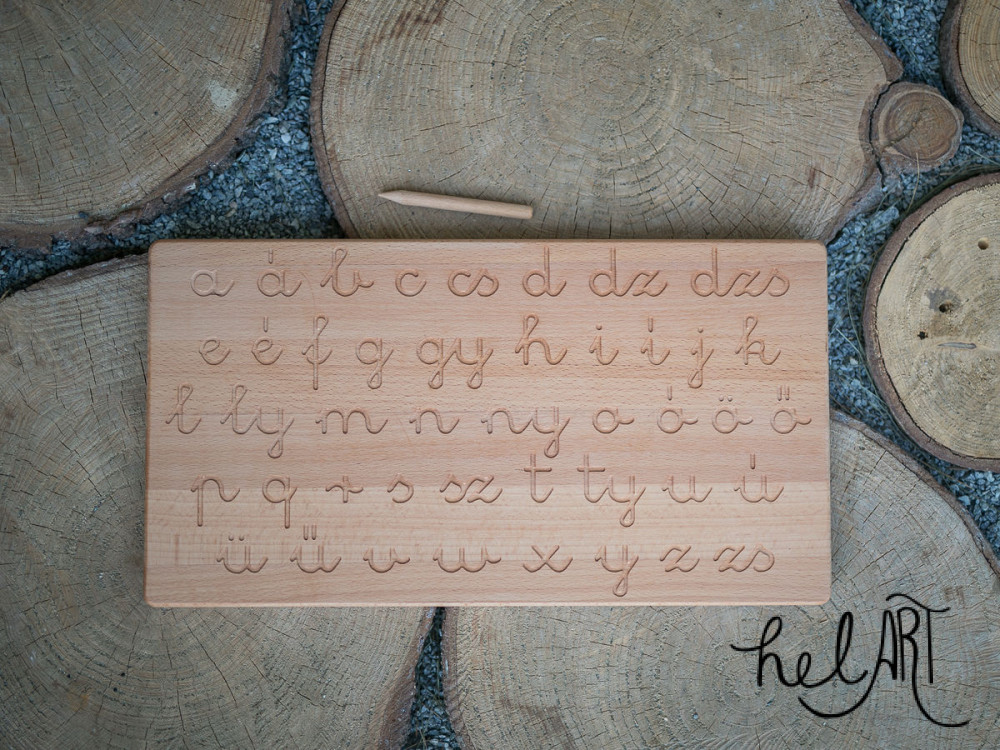 a á b c cs d dz dzs
e é f g gy h i í j k
l ly m n ny o ó ö ő
p q r s sz t ty u ú
ü ű v w x y z zs
helART